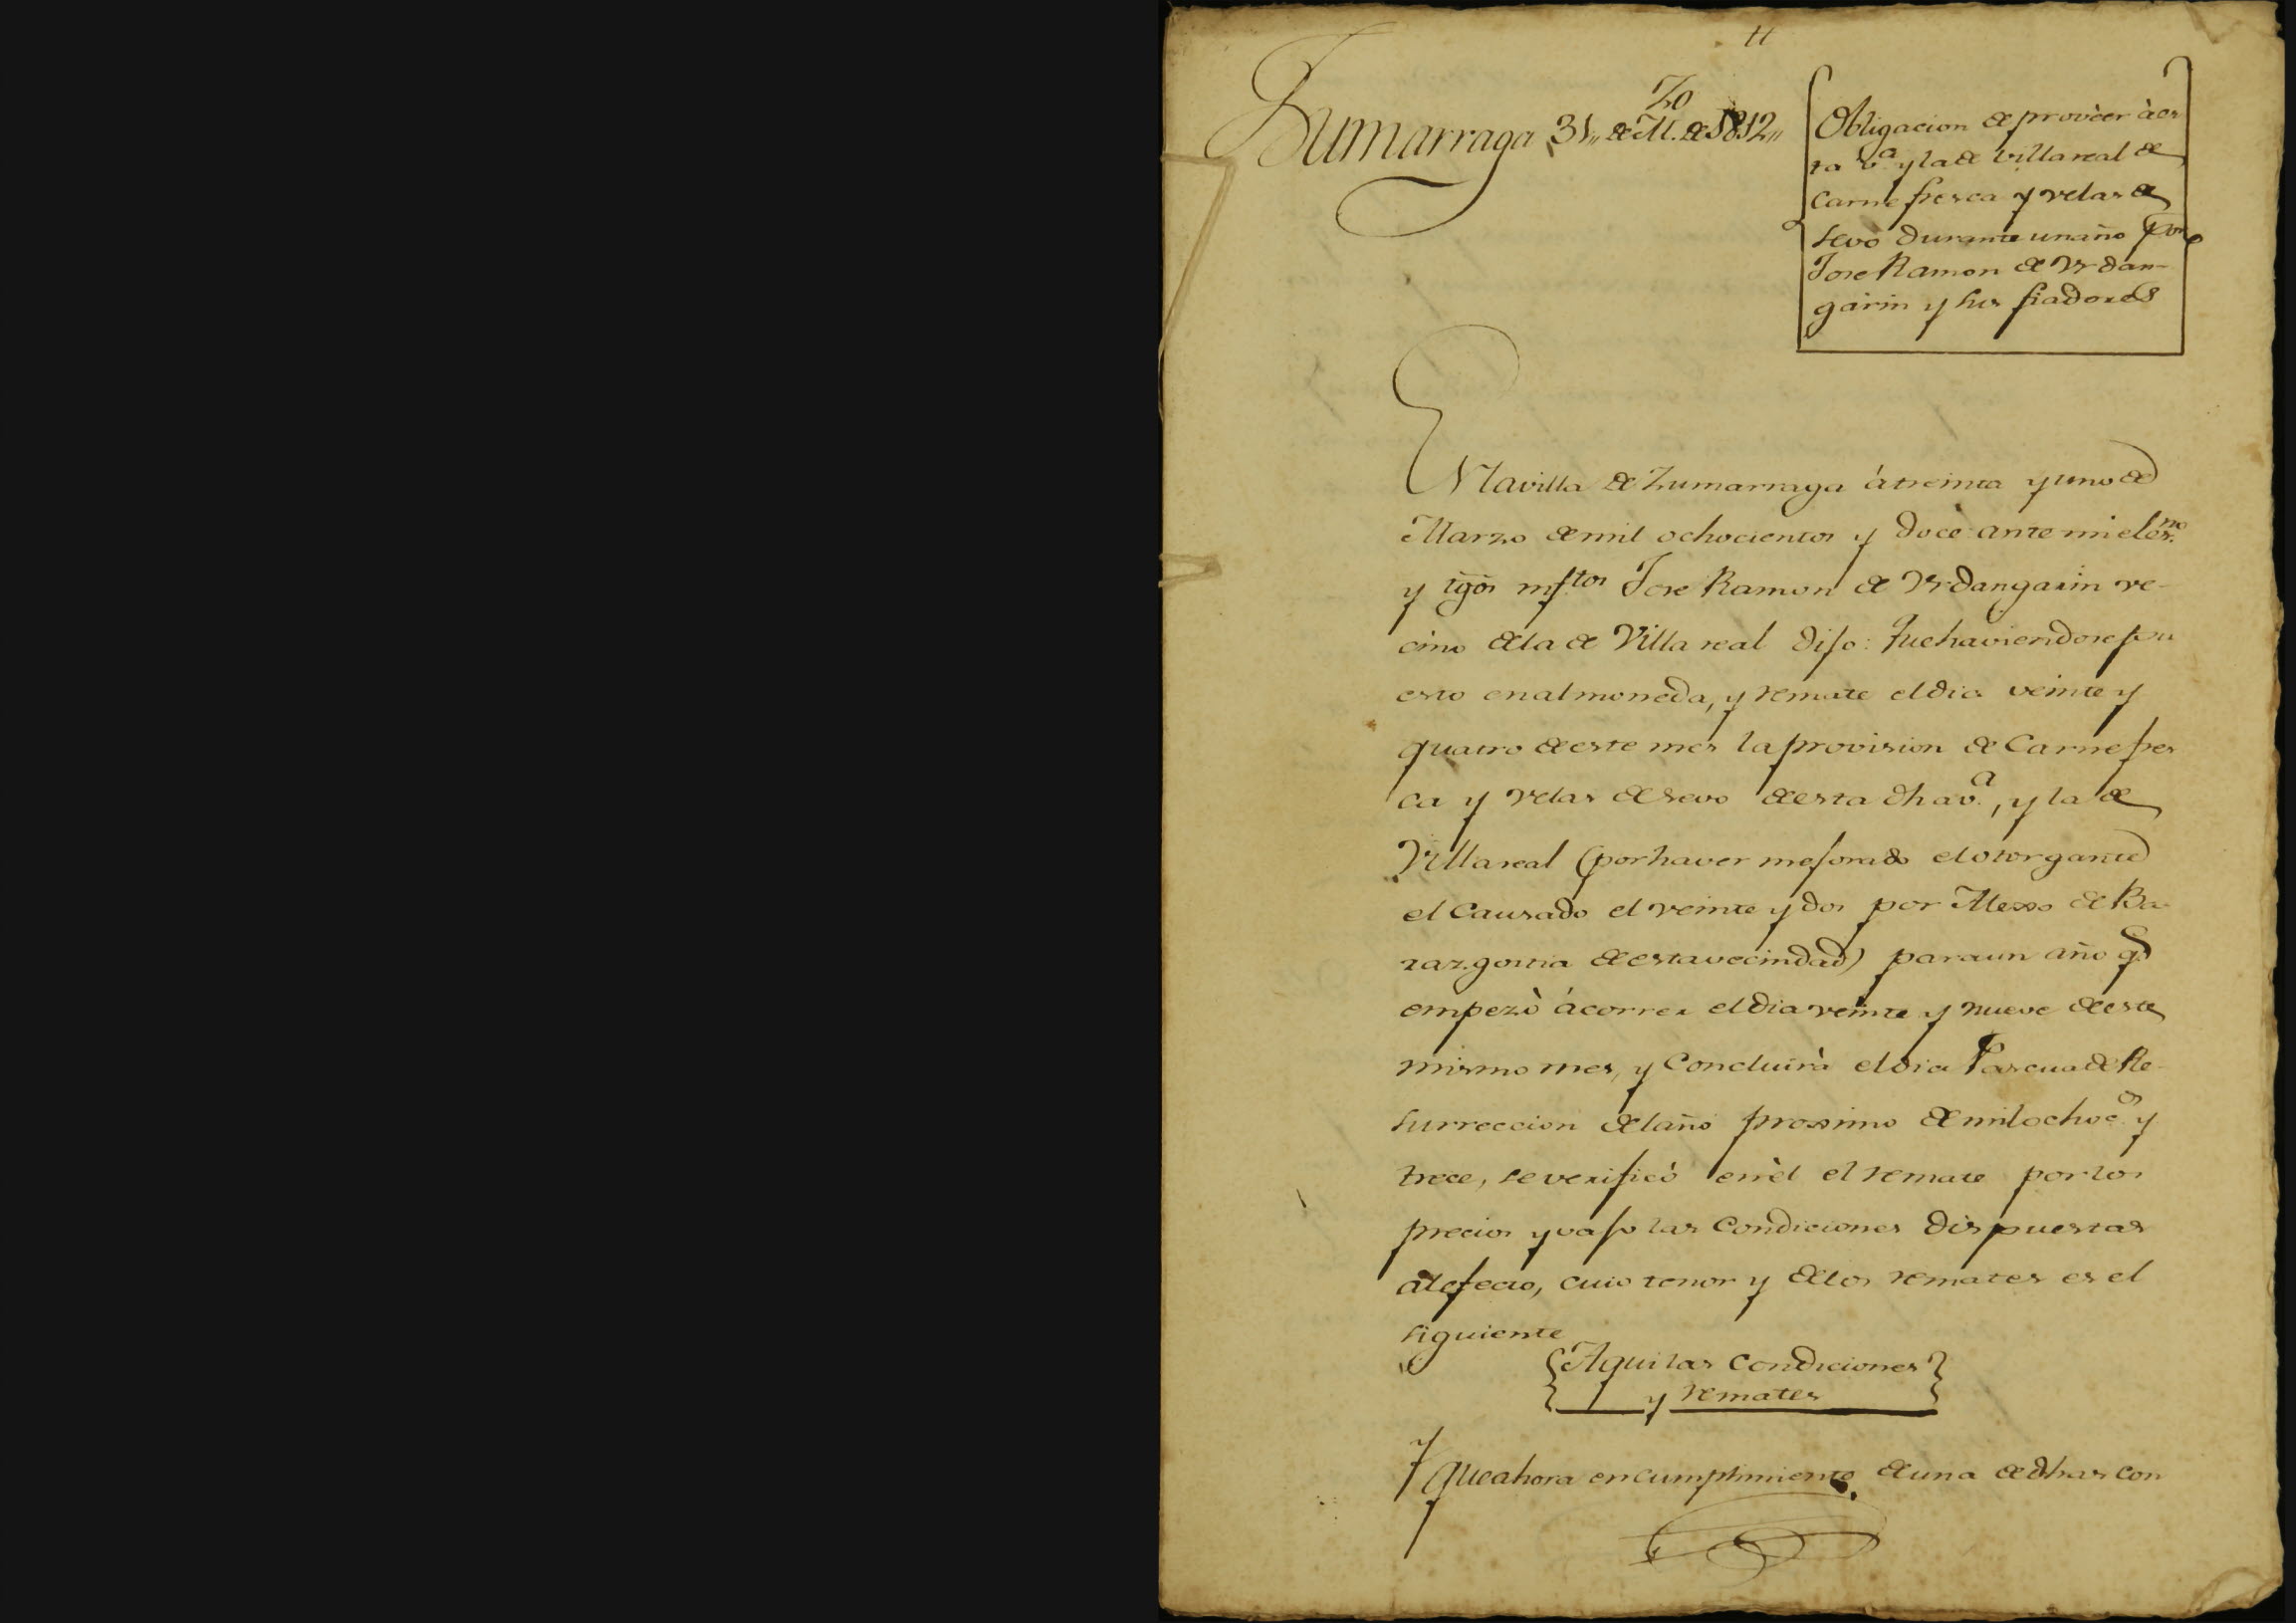 Zumarraga 31,, de M.zo de 1812,,
Obligacion de provèer à es
ta v.a y la de Villareal de
Carne fresca y velas de
sevo durante un año por
Jose Ramon de Urdan-
garin y sus fiadores
En la villa de Zumarraga á treinta y uno de
Marzo de mil ochocientos y doce ante mi el es.no
y tgõs inftos Jose Ramon de Urdangarin ve-
cino de la de Villareal dijo: Que haviendose pu
esto en almoneda, y remate el dia veinte y
quatro de este mes la provision de Carne fres
ca y velas de sevo de esta dha v.a, y la de
Villareal (por haver mejorado el otorgante
el Causado el veinte y dos por Alexo de Ba-
razgoitia de esta vecindad) para un año q.e
empezò á correr el dia veinte y nueve de este
mismo mes, y Concluirà el dia Pascua de Re-
surreccion del año proximo de mil ochoc.os y
trece, se verificó en èl el remate por los
precios y vajo las Condiciones dispuestas
al efecto, cuio tenor y de los remates es el
siguiente
{Aqui las condiciones}
y remates
Y que ahora en cumplimiento de una de dhas con